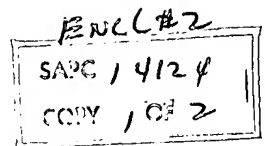 ENCL #2
SAPC 14124
COPY 1 OF 2